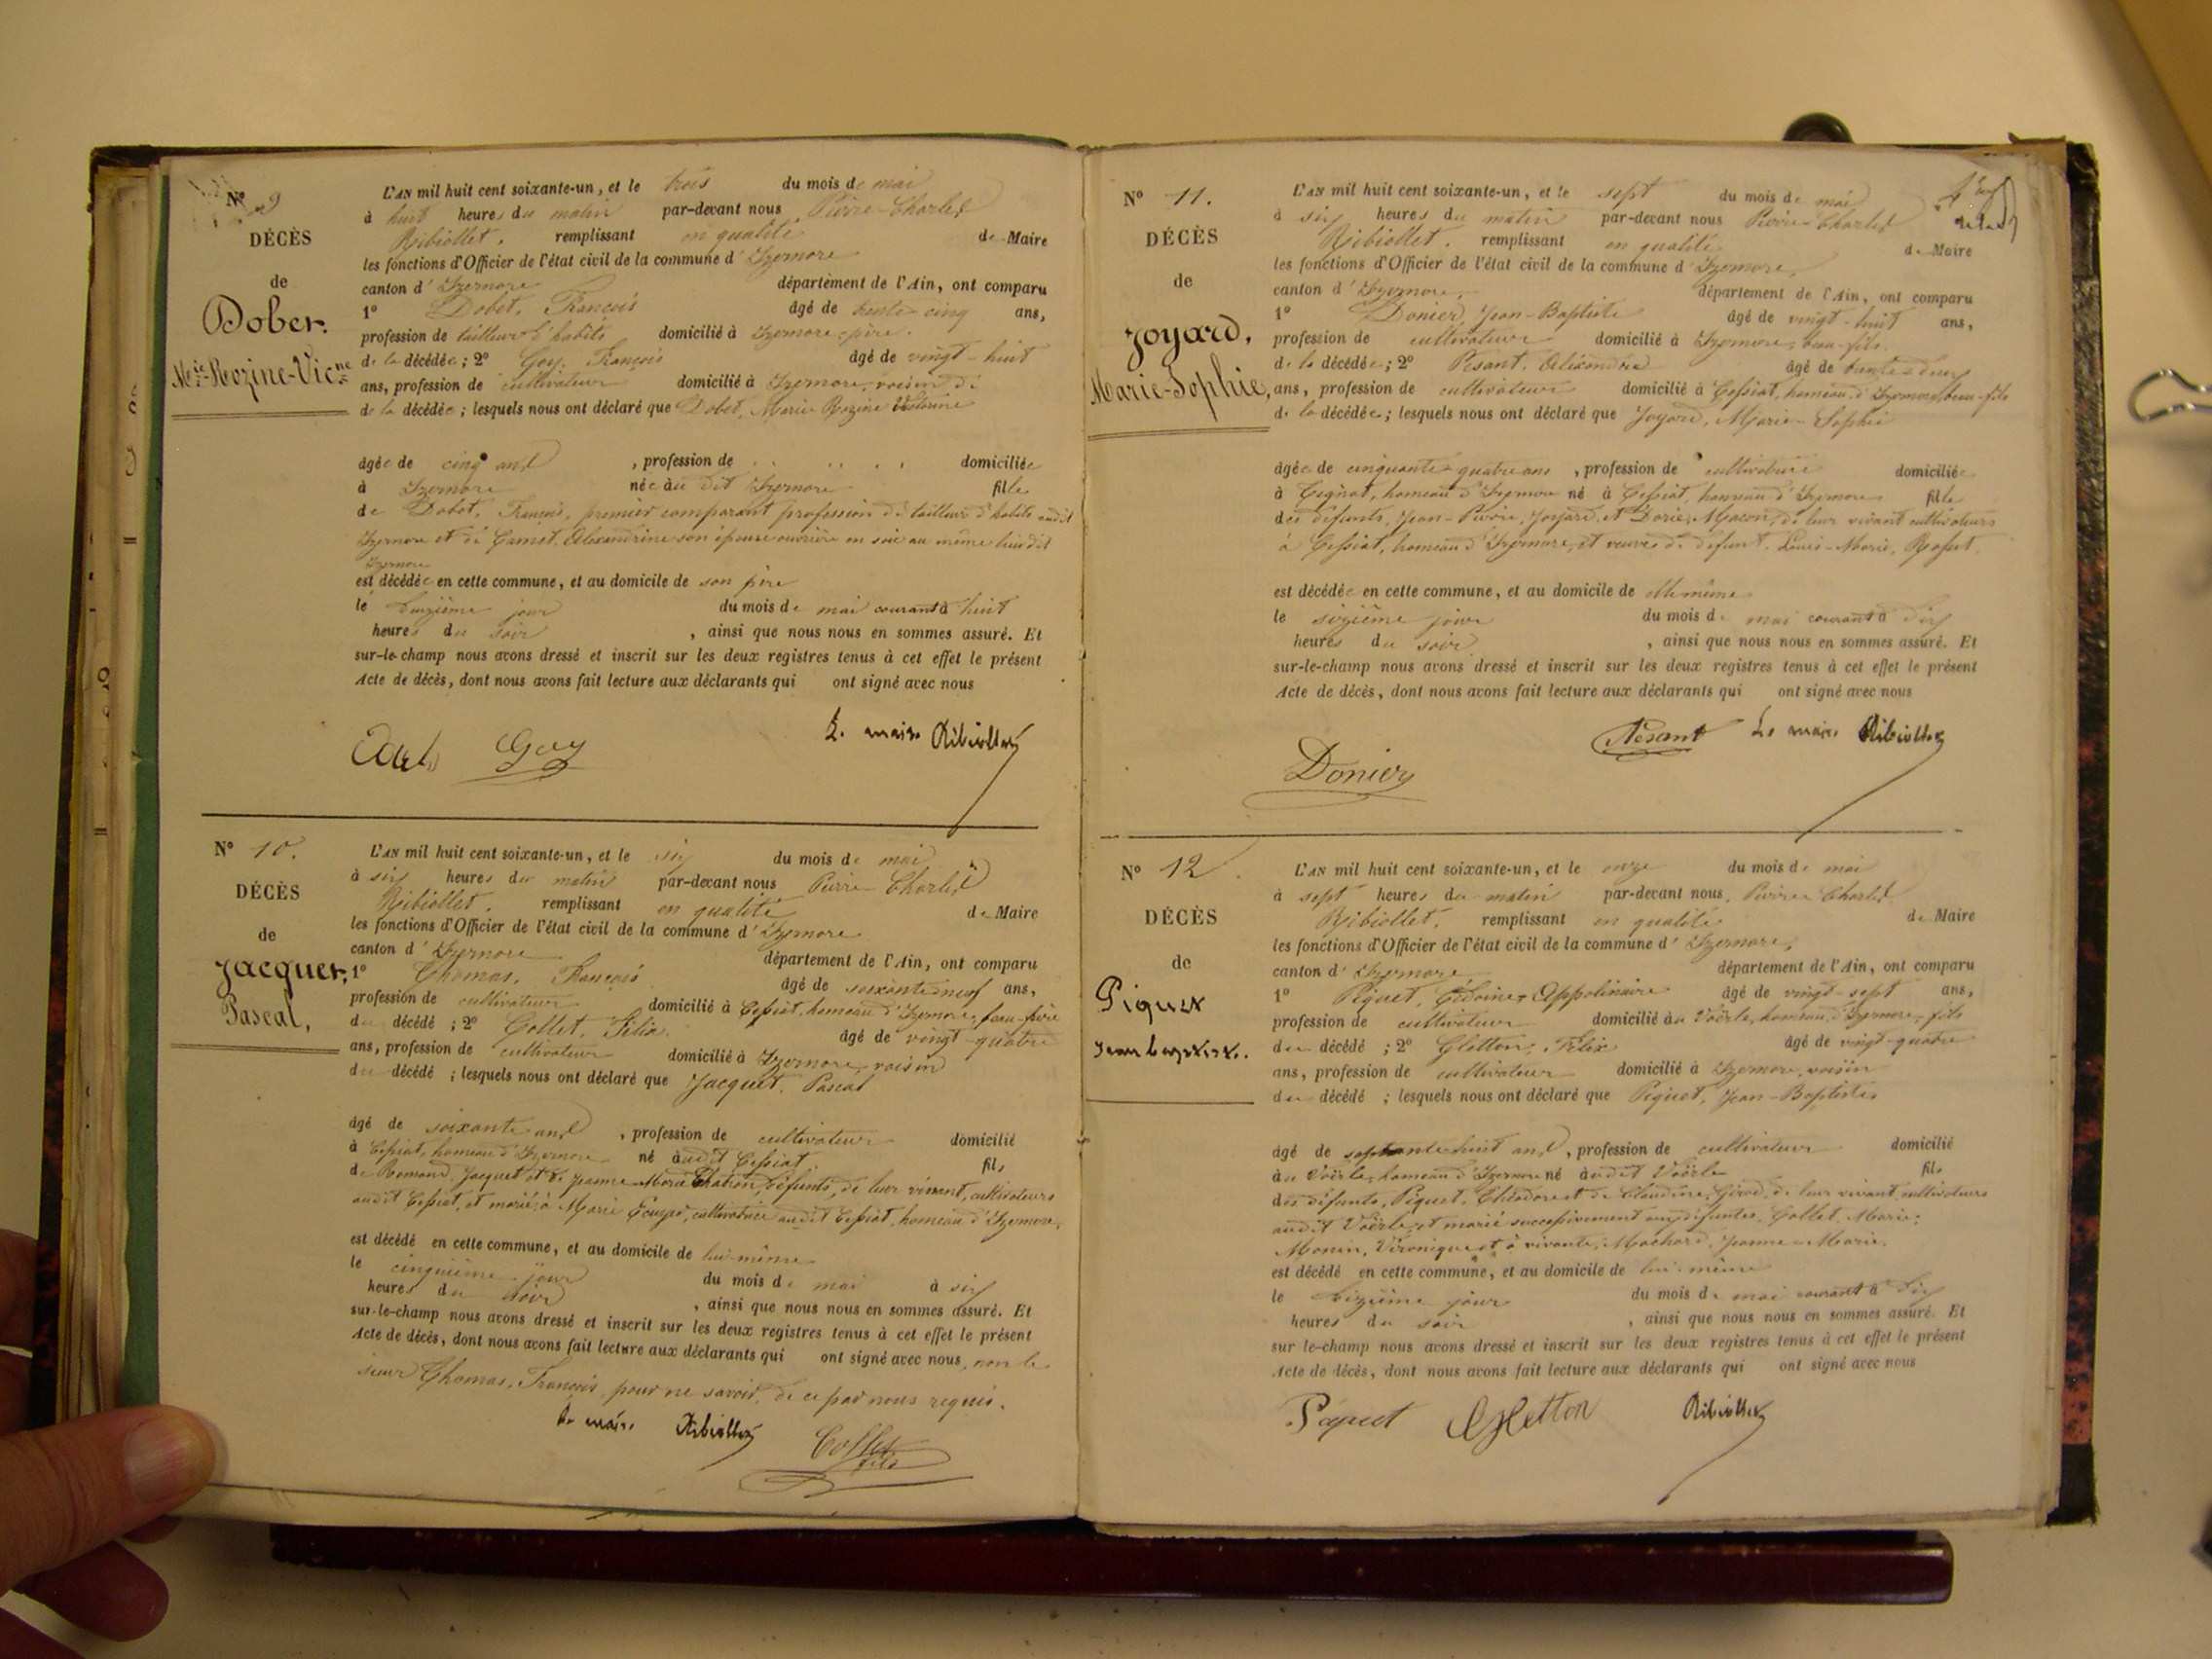 N° 9
DÉCÈS
de
Dobet.
Mie-Rozine-Vicne
L'AN mil huit cent soixante-un, et le trois du mois de mai
à huit heures du matin par-devant nous Pierre-Charles
Ribiollet, remplissant en qualité de Maire
les fonctions d'Officier de l'état civil de la commune d'Izernore
canton d'Izernore département de l'Ain, ont comparu
1° Dobet, François âgé de trente-cinq ans,
profession de tailleur d'habits domicilié à Izernore, père
de la décédée ; 2° Goy, François âgé de vingt-huit
ans, profession de cultivateur domicilié à Izernore, voisin de
de la décédée ; lesquels nous ont déclaré que Dobet, Marie Rozine Victorine
âgée de cinq ans , profession de . . . . domiciliée
à Izernore née au dit Izernore fille
de Dobet, François, premier comparant profession de tailleur d'habits audit
Izernore et de Alexandrine son épouse ouvrière en soie au même lieu dit
Izernore
est décédée en cette commune, et au domicile de son père
le deuxième jour du mois de mai courant à huit
heures du soir , ainsi que nous nous en sommes assuré. Et
sur-le-champ nous avons dressé et inscrit sur les deux registres tenus à cet effet le présent
Acte de décès, dont nous avons fait lecture aux déclarants qui ont signé avec nous
Goy Le maire Ribiollet
N° 10.
DÉCÈS
de
Jacquet,
Pascal,
L'AN mil huit cent soixante-un, et le six du mois de mai
à six heures du matin par-devant nous Pierre-Charles
Ribiollet, remplissant en qualité de Maire
les fonctions d'Officier de l'état civil de la commune d'Izernore
canton d'Izernore département de l'Ain, ont comparu
1° Thomas, François âgé de soixante-neuf ans,
profession de cultivateur domicilié à Cessiat, hameau d'Izernore, beau-frère
du décédé ; 2° Collet, Félix âgé de vingt-quatre
ans, profession de cultivateur domicilié à Izernore, voisin
du décédé ; lesquels nous ont déclaré que Jacquet, Pascal
âgé de soixante ans , profession de cultivateur domicilié
à Cessiat, hameau d'Izernore né audit Cessiat fils
de Romand, Jacquet et de Jeanne-Marie défunts, de leur vivant, cultivateurs
audit Cessiat, et marié à Marie cultivatrice audit Cessiat, hameau d'Izernore,
est décédé en cette commune, et au domicile de lui-même
le cinquième jour du mois de mai à six
heures du soir , ainsi que nous nous en sommes assuré. Et
sur-le-champ nous avons dressé et inscrit sur les deux registres tenus à cet effet le présent
Acte de décès, dont nous avons fait lecture aux déclarants qui ont signé avec nous, non le
sieur Thomas, François pour ne savoir, de ce par nous requis.
Le maire Ribiollet Collet fils
N° 11.
DÉCÈS
de
Joyard,
Marie-Sophie,
L'AN mil huit cent soixante-un, et le sept du mois de mai
à six heures du matin par-devant nous Pierre-Charles
Ribiollet, remplissant en qualité de Maire
les fonctions d'Officier de l'état civil de la commune d'Izernore,
canton d'Izernore, département de l'Ain, ont comparu
1° Donier, Jean-Baptiste âgé de vingt-huit ans,
profession de cultivateur domicilié à Izernore, beau-fils
de la décédée ; 2° Pesant, Alexandre âgé de trente-deux
ans, profession de cultivateur domicilié à Cessiat, hameau d'Izernore, beau-fils
de la décédée ; lesquels nous ont déclaré que Joyard, Marie-Sophie
âgée de cinquante-quatre ans , profession de cultivatrice domiciliée
à Tignat, hameau d'Izernore né à Cessiat, hameau d'Izernore fille
des défunts, Jean-Pierre, Joyard, et Marie, de leur vivant cultivateurs
à Cessiat, hameau d'Izernore, et veuve de défunt, Louis-Marie,
est décédée en cette commune, et au domicile de elle-même
le sixième jour du mois de mai courant à dix
heures du soir , ainsi que nous nous en sommes assuré. Et
sur-le-champ nous avons dressé et inscrit sur les deux registres tenus à cet effet le présent
Acte de décès, dont nous avons fait lecture aux déclarants qui ont signé avec nous
Donier Pesant Le maire Ribiollet
N° 12
DÉCÈS
de
Piquet
Jean baptiste.
L'AN mil huit cent soixante-un, et le onze du mois de mai
à sept heures du matin par-devant nous, Pierre-Charles
Ribiollet, remplissant en qualité de Maire
les fonctions d'Officier de l'état civil de la commune d'Izernore,
canton d'Izernore département de l'Ain, ont comparu
1° Piquet, Appolinaire âgé de vingt-sept ans,
profession de cultivateur domicilié au Voërle, hameau d'Izernore, fils
du décédé ; 2° Gletton, Félix âgé de vingt-quatre
ans, profession de cultivateur domicilié à Izernore, voisin
du décédé ; lesquels nous ont déclaré que Piquet, Jean-Baptiste
âgé de soixante-huit ans , profession de cultivateur domicilié
au Voërle, hameau d'Izernore né audit Voërle fils
des défunts, Piquet, Théodore et de Claudine, Girod, de leur vivant cultivateurs
audit Voërle, et marié successivement aux défuntes, Collet, Marie;
Monin, Véronique et à vivante, Mochard, Jeanne-Marie.
est décédé en cette commune, et au domicile de lui-même
le dixième jour du mois de mai courant à dix
heures du soir , ainsi que nous nous en sommes assuré. Et
sur le-champ nous avons dressé et inscrit sur les deux registres tenus à cet effet le présent
Acte de décès, dont nous avons fait lecture aux déclarants qui ont signé avec nous
Piquet Gletton Ribiollet